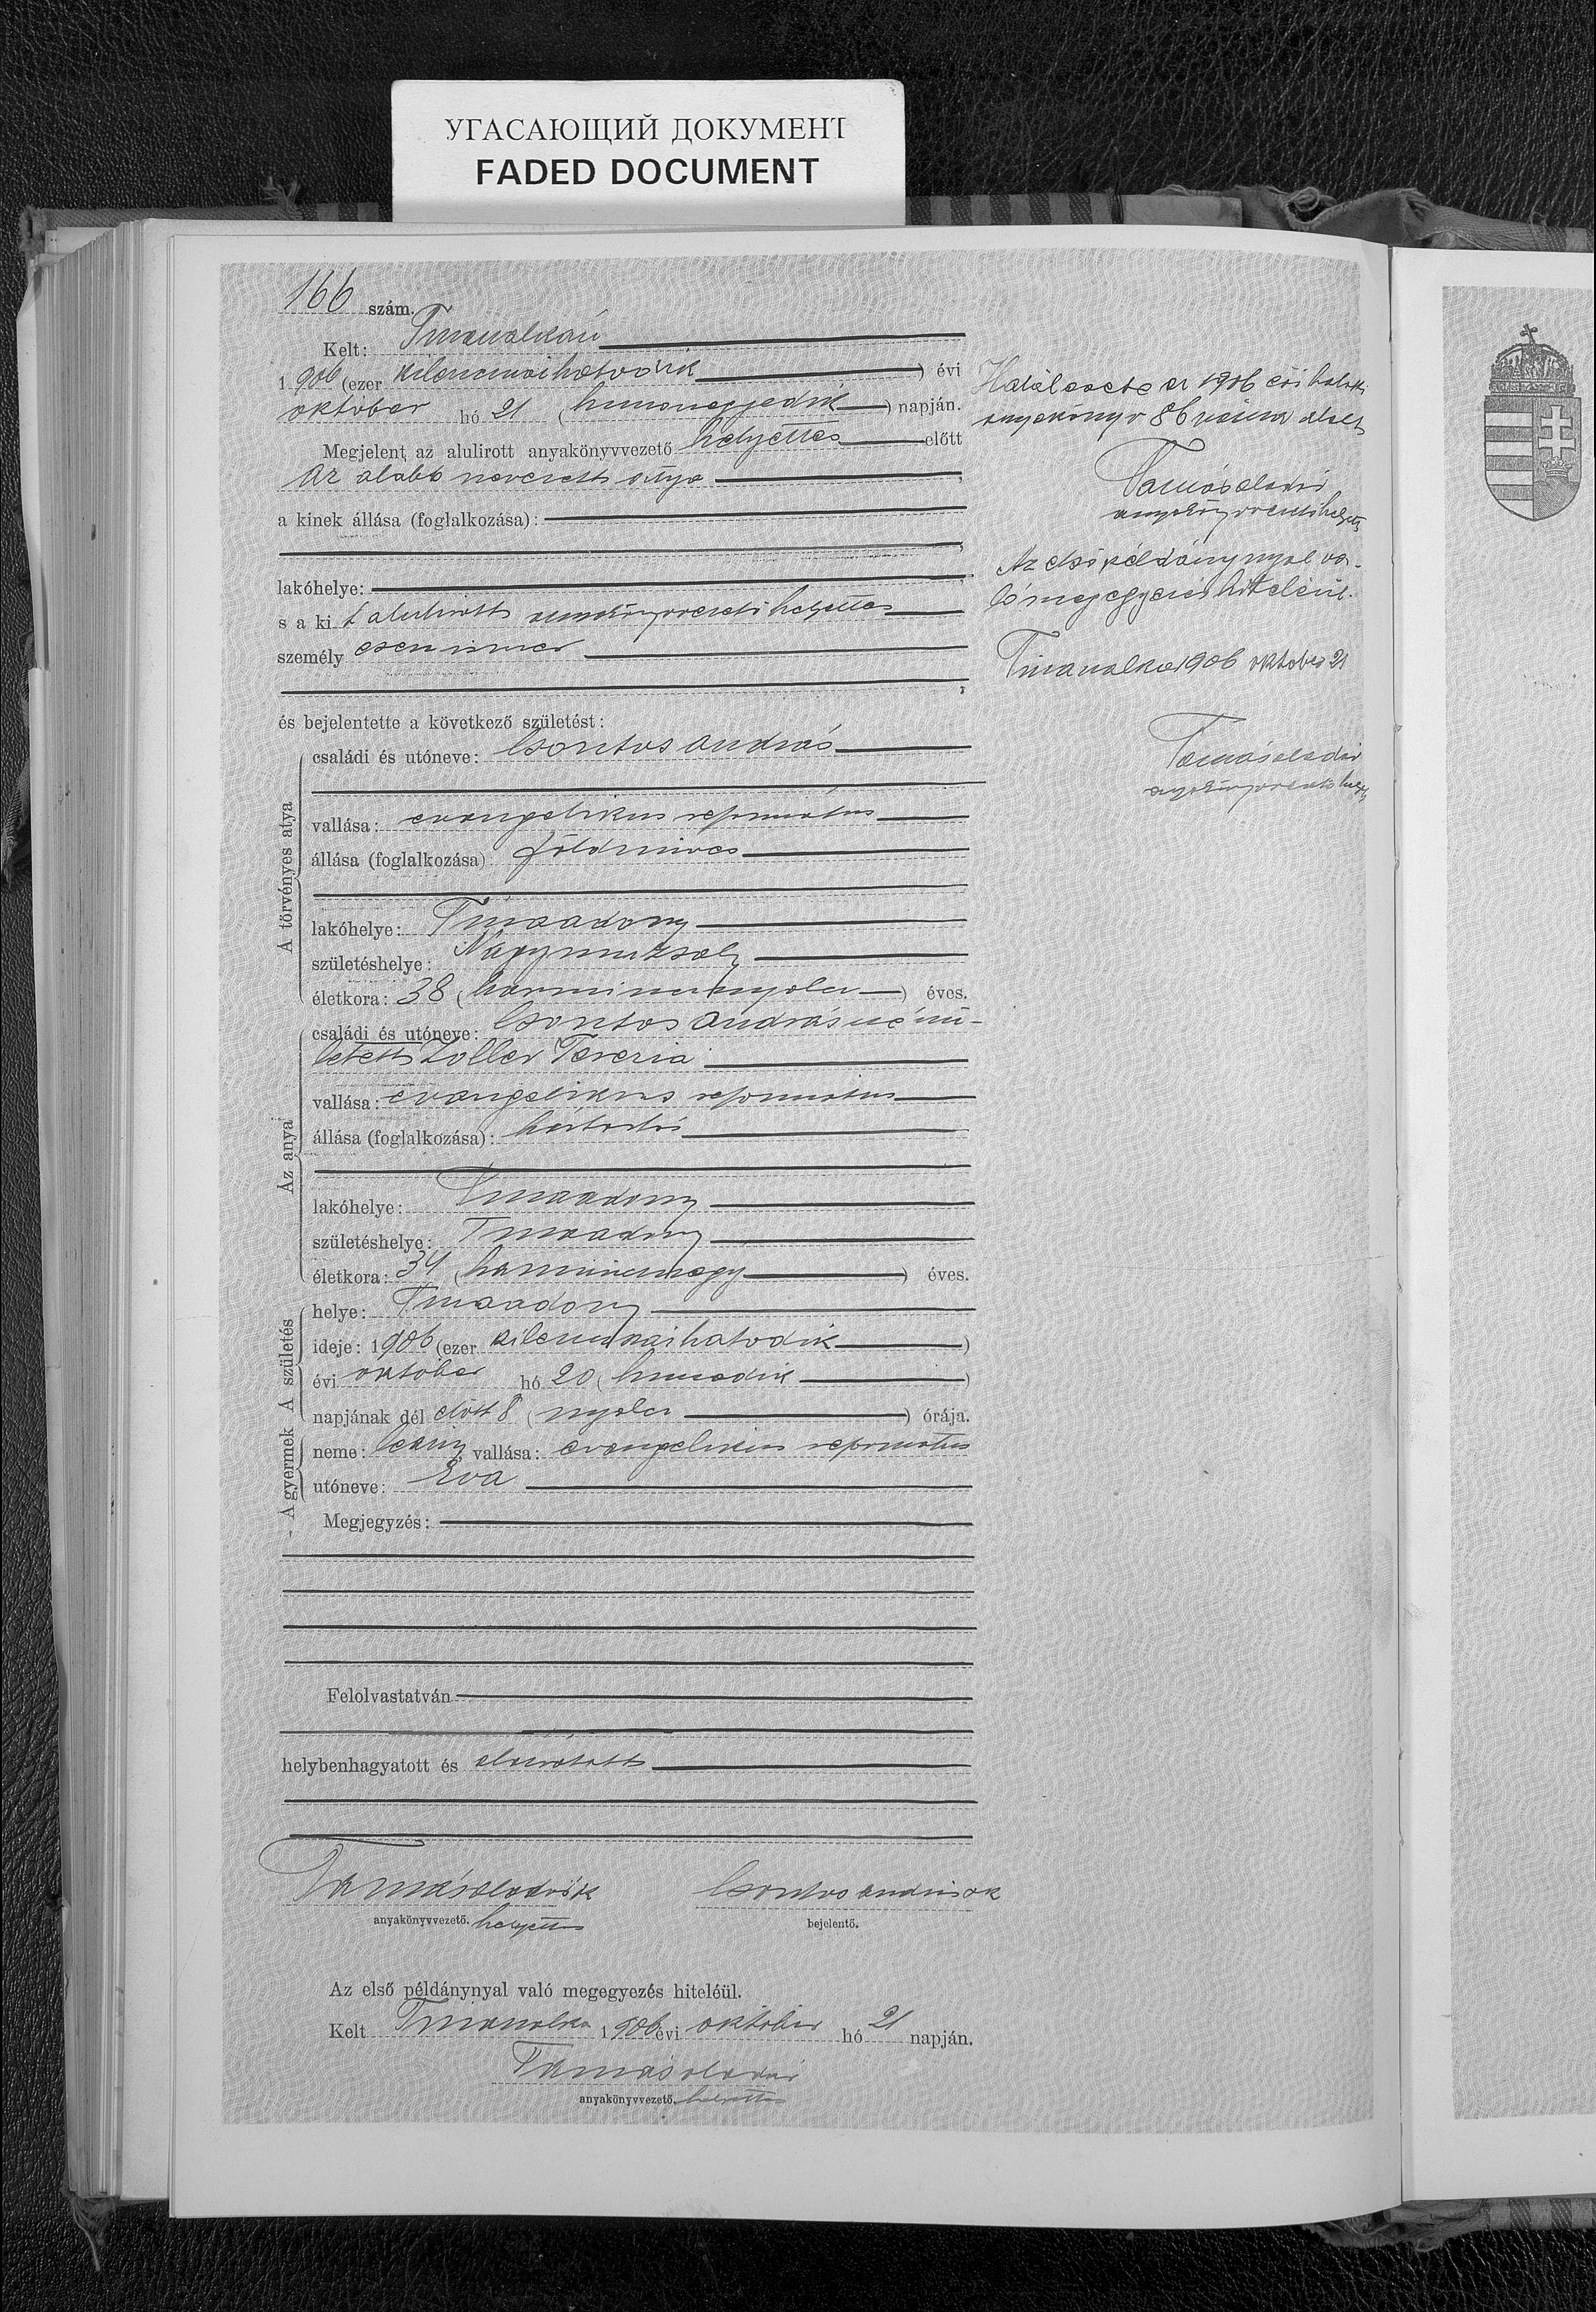 УГАСАЮЩИЙ ДОКУМЕНТ
FADED DOCUMENT
166 szám.
Kelt: Tiszaujlakán
1906 (ezer kilenczszázhatodik) évi
október hó 21 (huszonegyedik) napján.
Megjelent az alulirott anyakönyvvezető helyettes előtt
az alább nevezett atya,
a kinek állása (foglalkozása):
lakóhelye:
s a kit alulirott anyakönyvvezető helyettes
személyesen ismer
és bejelentette a következő születést:
A törvényes atya
családi és utóneve: Csontos András
vallása: evangelikus református
állása (foglalkozása): földmives
lakóhelye: Tiszaadony
születéshelye: Nagymuzsaly
életkora: 38 (harmincznyolcz) éves.
Az anya
családi és utóneve: Csontos Andrásné szü-
letett Zoller Terézia
vallása: evangelikus református
állása (foglalkozása): háztartás
lakóhelye: Tiszaadony
születéshelye: Tiszaadony
életkora: 34 (harmincznégy) éves.
A születés
helye: Tiszaadony
ideje: 1906 (ezer kilenczszázhatodik)
évi október hó 20 (huszadik)
napjának dél előtt 8 (nyolcz) órája.
A gyermek
neme: leány, vallása: evangelikus református
utóneve: Éva
Megjegyzés:
Felolvastatván
helybenhagyatott és aláiratott
Tamás Aladár sk Csontos András sk
anyakönyvvezető. helyettes bejelentő.
Az első példánynyal való megegyezés hiteléül.
Kelt Tiszaujlak 1906 évi október hó 21 napján.
Tamás Aladár
anyakönyvvezető. helyettes
Halálesete az 1906 évi halotti
anyakönyv 86 száma alatt
Tamás Aladár
anyakönyvvezető helyettes
Az első példánynyal va-
ló megegyezés hiteléül.
Tiszaujlak 1906 október 21
Tamás Aladár
anyakönyvvezető helyettes